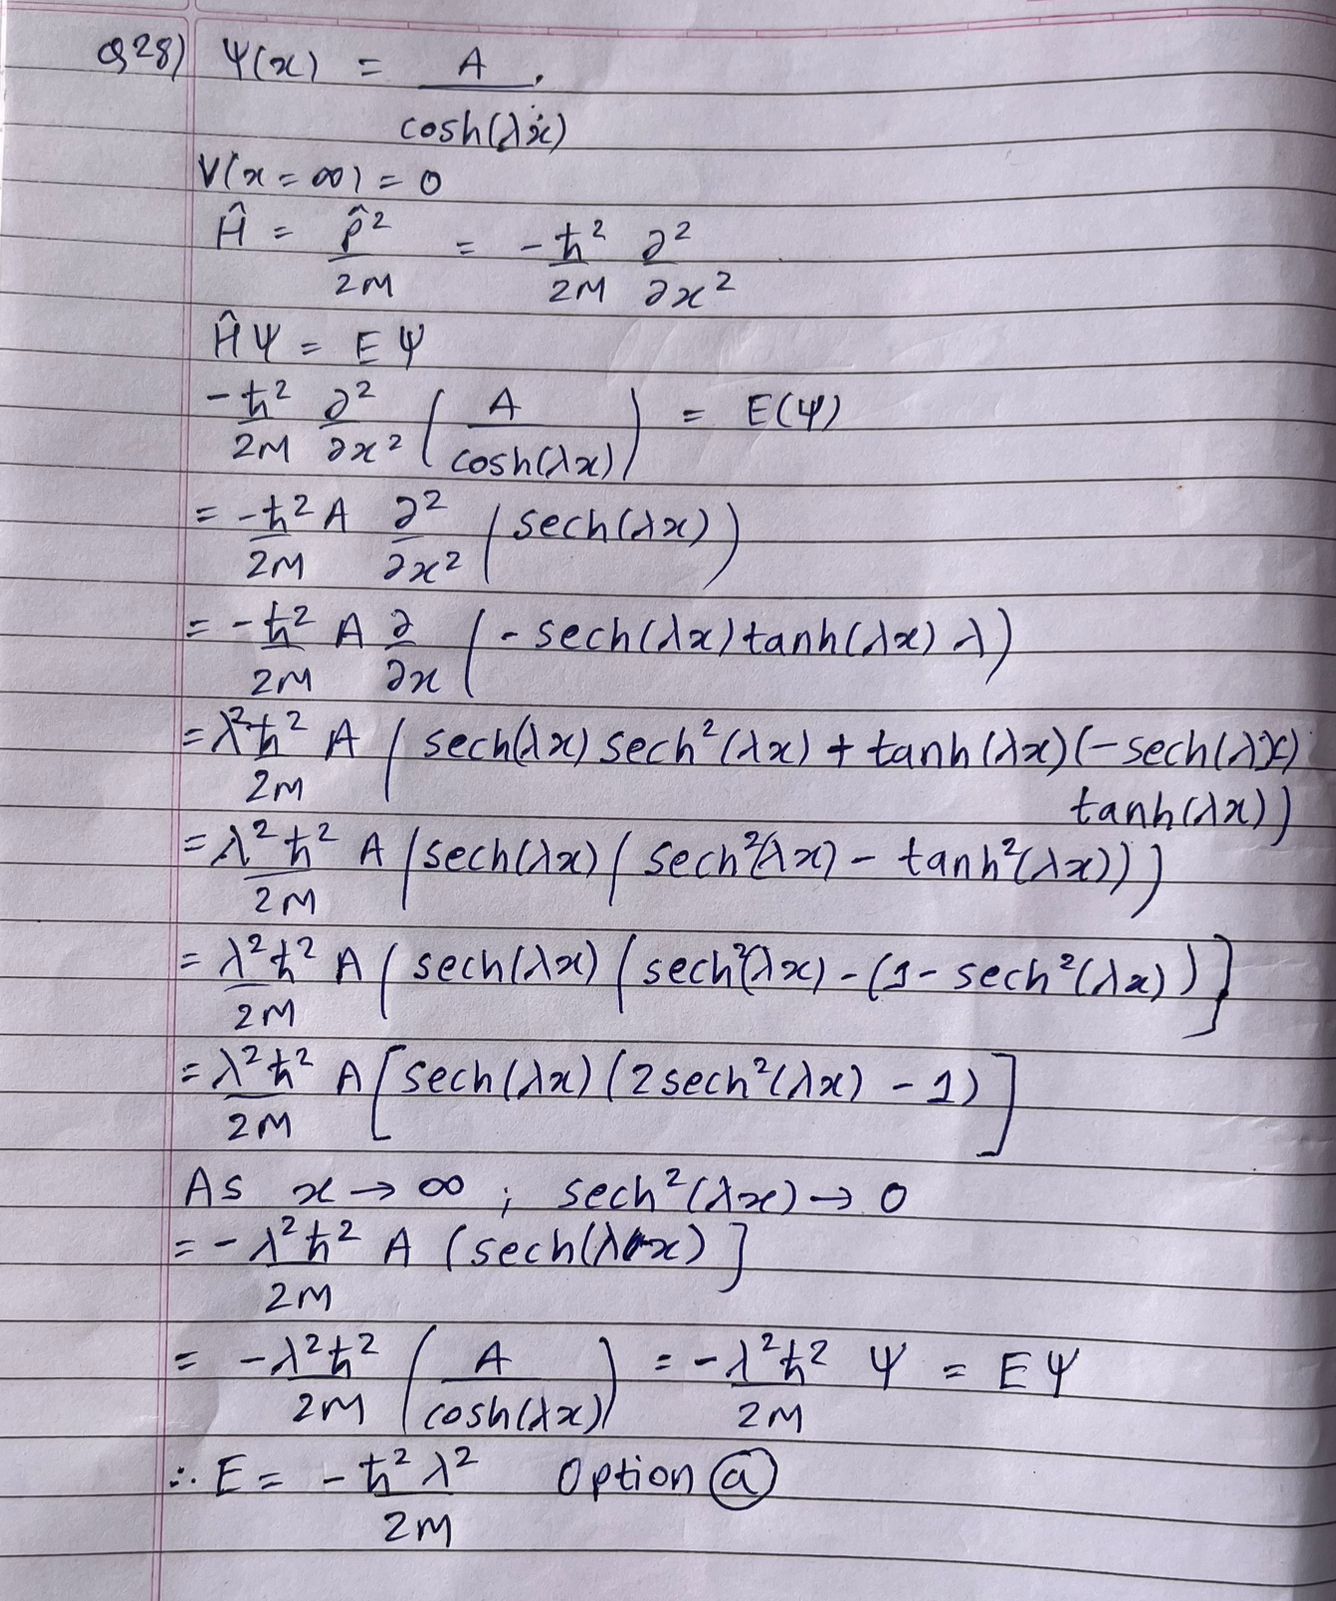 Q28) Ψ(x) = A / cosh(λx)
V(x = ∞) = 0
Ĥ = p̂² / 2M = -ħ² / 2M ∂² / ∂x²
ĤΨ = EΨ
-ħ² / 2M ∂² / ∂x² ( A / cosh(λx) ) = E(Ψ)
= -ħ² / 2M A ∂² / ∂x² ( sech(λx) )
= -ħ² / 2M A ∂ / ∂x ( - sech(λx) tanh(λx) λ )
= λ²ħ² / 2M A ( sech(λx) sech²(λx) + tanh(λx) (-sech(λx)
tanh(λx))
= λ²ħ² / 2M A ( sech(λx) ( sech²(λx) - tanh²(λx)))
= λ²ħ² / 2M A ( sech(λx) ( sech²(λx) - (1 - sech²(λx)) ]
= λ²ħ² / 2M A [ sech(λx) (2 sech²(λx) - 1) ]
As x → ∞ ; sech²(λx) → 0
= - λ²ħ² / 2M A ( sech(λx) ]
= -λ²ħ² / 2M ( A / cosh(λx) ) = - λ²ħ² / 2M Ψ = EΨ
∴ E = - ħ²λ² / 2M Option (a)